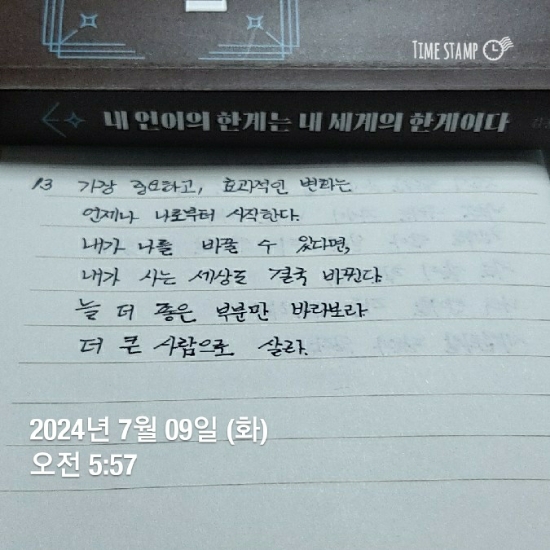 TIME STAMP
내 언어의 한계는 내 세계의 한계이다
13 가장 필요하고, 효과적인 변화는
언제나 나로부터 시작한다.
내가 나를 바꿀 수 있다면,
내가 사는 세상도 결국 바뀐다
늘 더 좋은 부분만 바라보라
더 큰 사람으로 살라.
2024년 7월 09일 (화)
오전 5:57